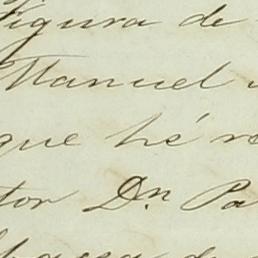 Figura de
Manuel
que hé re
tor Dn. Pa